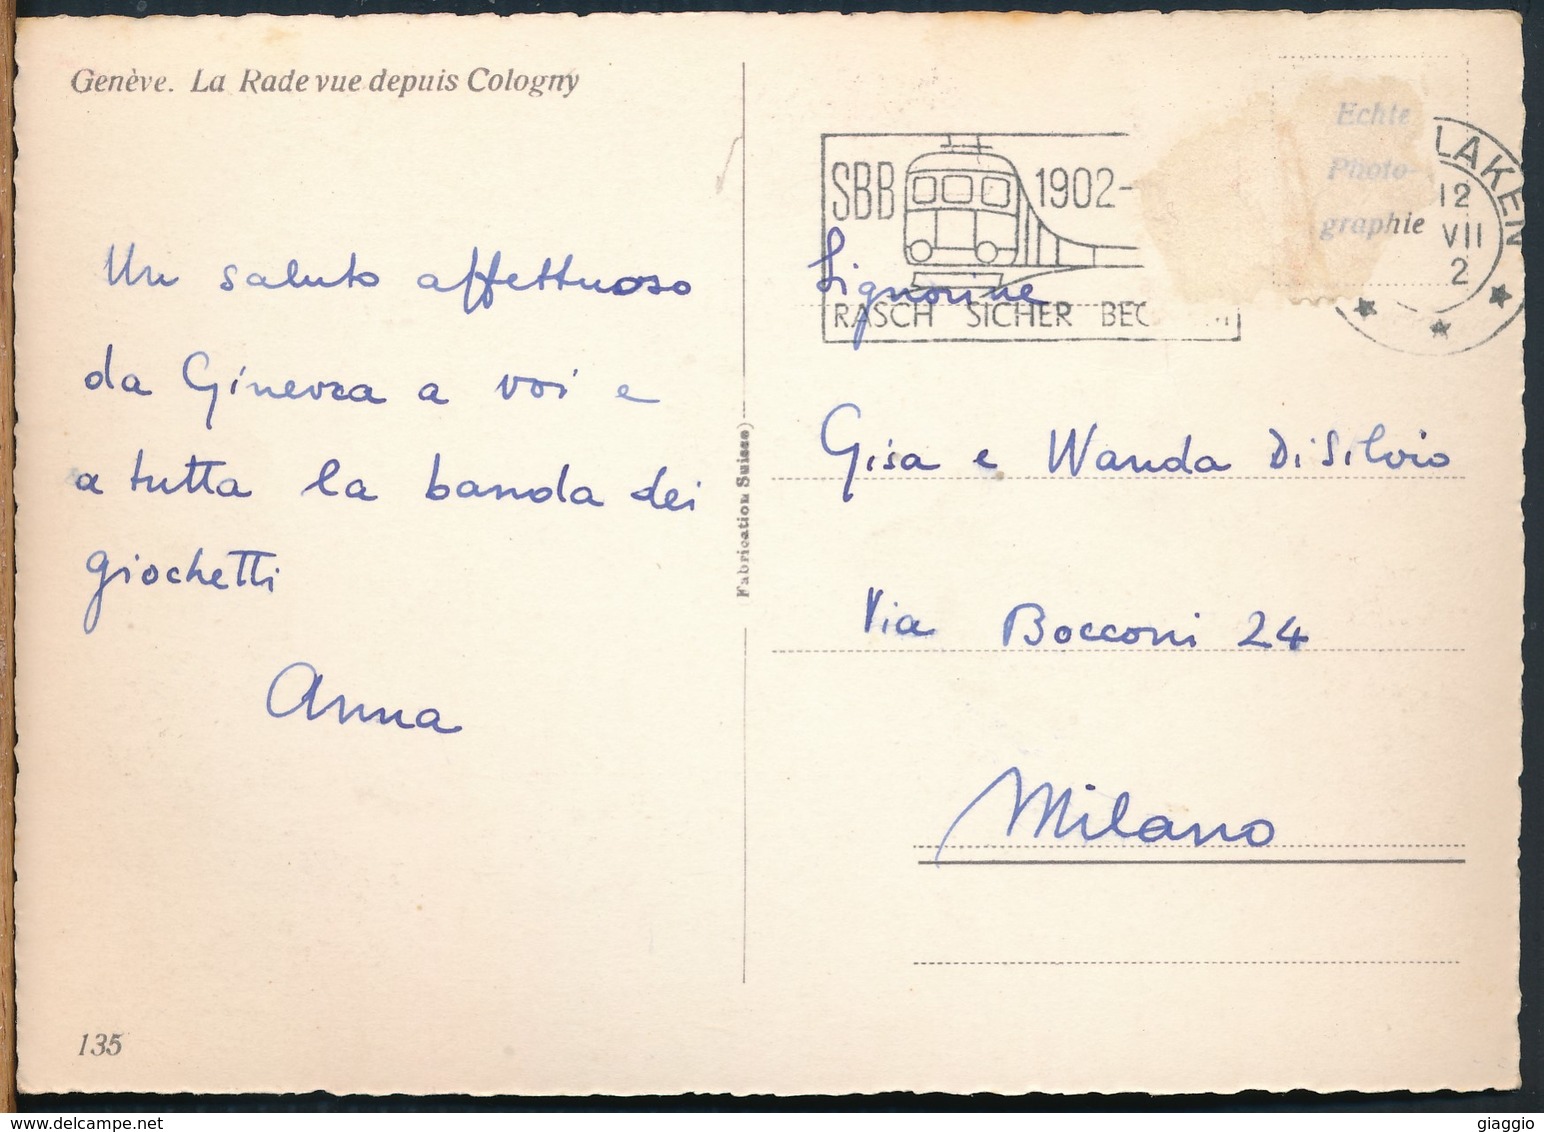 Genève. La Rade vue depuis Cologny
Un saluto affettuoso
da Ginevra a voi e
a tutta la banda dei
giochetti
Anna
135
Fabrication Suisse)
SBB 1902-
RASCH SICHER
LAKEN
12
VII
2
Echte
Photo-
graphie
Signorine
Gisa e Wanda Di Silvio
Via Bocconi 24
Milano
giaggio